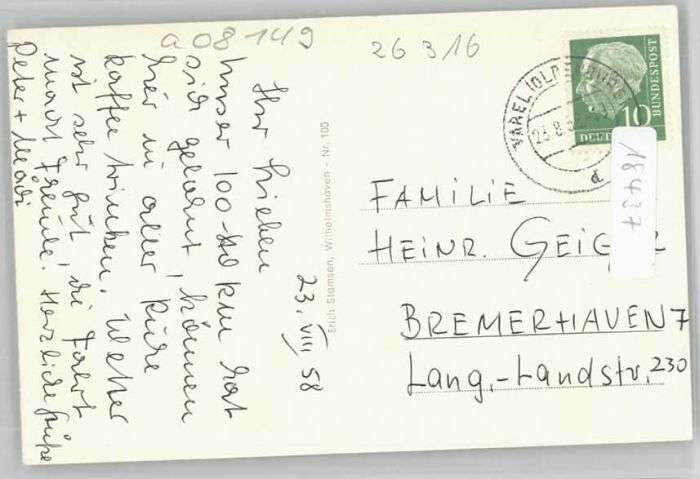 a 08 149
26 3 16
23. VIII 58
Ihr Lieben
Unser 100-  km hat
sich gelohnt, können
hier in aller Ruhe
Kaffee trinken. Wetter
ist sehr gut, die Fahrt
macht Freude. Herzliche Grüße
Peter +
Erich Stamsen, Wilhelmshaven - Nr. 100
VAREL (OLDENBURG)
23.8.
d
10
DEUTSCHE
BUNDESPOST
18437
FAMILIE
HEINR. GEIGER
BREMERHAVEN 7
Lang.-Landstr. 230